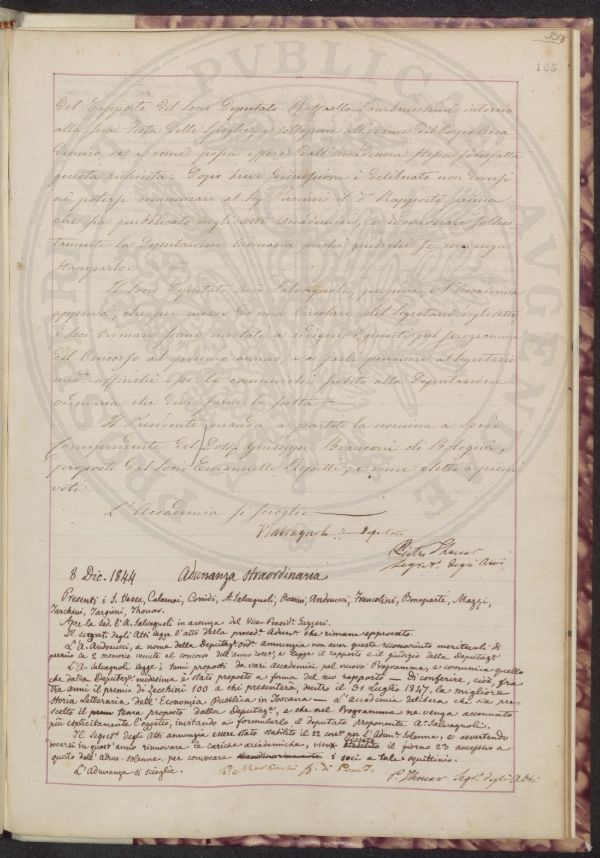 558
165
del Rapporto del Socio Deputato Raffaello Lambruschini intorno
alla sua Visita delle Scuole, e sottopone all'esame del Corpo Acca
demico, se e come possa essere dall'Accademia stessa sodisfatta
questa richiesta. Dopo breve discussione è deliberato non doversi
nè potersi comunicare al Sig. Puccini il d.º Rapporto prima
che sia pubblicato negli Atti Accademici, e di convocare solleci
tamente la Deputazione Ordinaria perchè giudichi se convenga
stamparlo.
Il Socio Deputato Salvagnoli, propone, e l'Accademia
approva, che per mezzo di una Circolare del Segretario degli Atti
i Soci Ordinari siano invitati a redigere i quesiti pel programma
del Concorso al premio annuo, e a farli pervenire al Segretario
med.º affinchè esso le comunichi subito alla Deputazione
ordinaria che deve farne la scelta.
Il Presidente manda a partito la nomina a Socio
Corrispondente del Dott. Giuseppe Bianconi di Bologna,
proposto dal Socio Emanuelle Repetti, e viene eletto a pieni
voti.
L'Accademia si scioglie
V. Salvagnoli
Pietro Thouar
Segret. degli Atti
8 Dic. 1844 Adunanza straordinaria
Presenti i S. Vasse, Calamai, Corridi, A. Salvagnoli, Andreucci, Francolini, Bonaparte, Mazzi,
Tarchini, Targioni, Thouar.
Apre la Sed. l'A. Salvagnoli in assenza del Vice-Presid.e Pezzeri.
Il Segret. degli Atti legge l'atto della preced.e Adun.a che rimane approvato.
L'A. Andreucci, a nome della Deputaz.e ord.a annunzia non aver questa riconosciute meritevoli di
premio le 2 memorie venute al concorso dell'anno corr.e, e legge il rapporto e il giudizio della Deputaz.e
L'A. Salvagnoli legge i temi proposti da vari Accademici pel nuovo Programma, e comunica quello
che dalla Deputaz.e medesima è stato proposto a forma del suo rapporto — di conferire, cioè, fra
tre anni il premio di Zecchini 100 a chi presenterà, dentro il 31 Luglio 1847, la migliore
Storia Letteraria dell'Economia Pubblica in Toscana — L'Accademia delibera che sia pre-
scelto il tema proposto dalla Deputaz.e, e che nel Programma ne venga accennato
più esplicitamente l'oggetto, invitando a formularlo, il deputato proponente A. Salvagnoli.
Il Segret.o degli Atti annunzia essere stato stabilito il 22 corr.e per l'Adun.a Solenne, e avvertendo
doversi in quest'anno rinnovare le cariche accademiche, viene fissato il giorno 23 successivo a
quello dell'Adun. solenne, per convocare i soci a tale squittinio.
L'Adunanza si scioglie.
P. Thouar Seg.o degli Atti